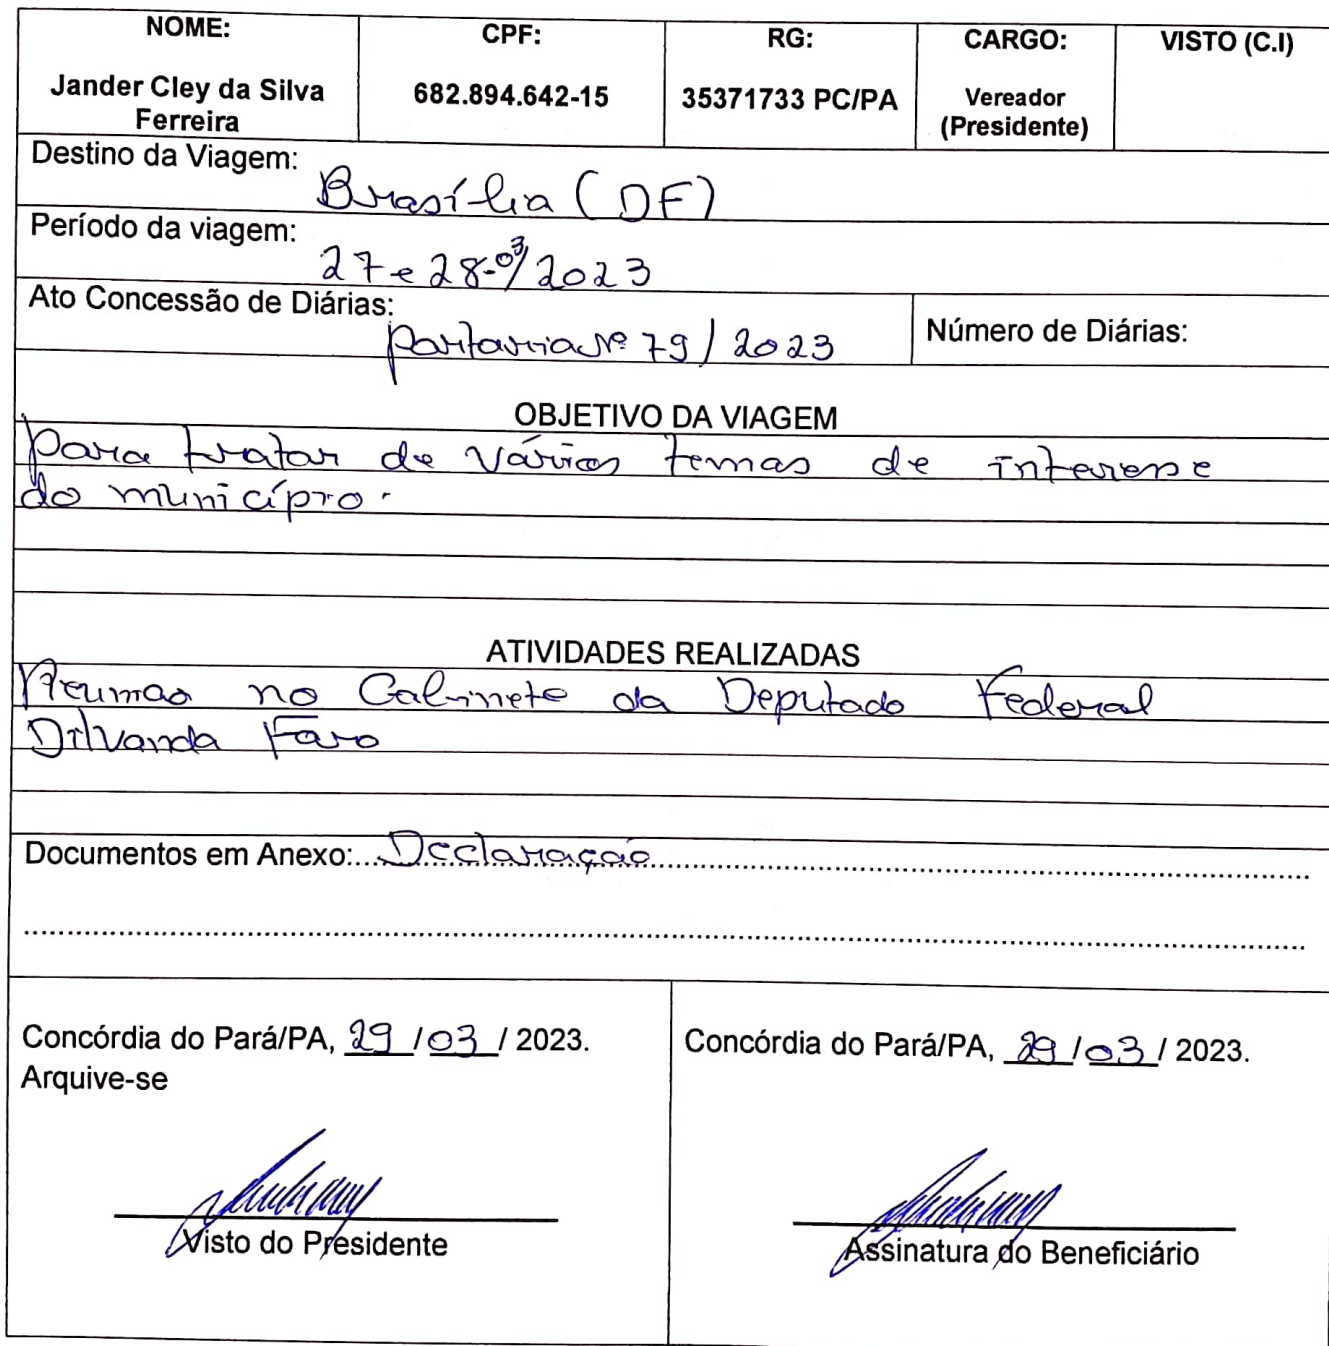 NOME: CPF: RG: CARGO: VISTO (C.I)
Jander Cley da Silva 682.894.642-15 35371733 PC/PA Vereador
Ferreira (Presidente)
Destino da Viagem: Brasília (DF)
Período da viagem: 27 e 28-03/2023
Ato Concessão de Diárias: Portaria Nº 79/2023 Número de Diárias:
OBJETIVO DA VIAGEM
Para tratar de vários temas de interesse
do município.
ATIVIDADES REALIZADAS
Reunião no Gabinete da Deputado Federal
Dilvanda Faro
Documentos em Anexo: Declaração
Concórdia do Pará/PA, 29 / 03 / 2023.
Arquive-se
Visto do Presidente
Concórdia do Pará/PA, 29 / 03 / 2023.
Assinatura do Beneficiário